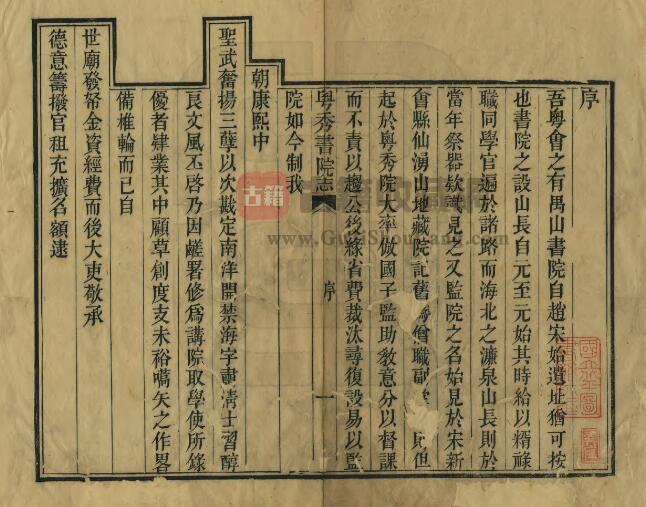 序
吾粵會之有禺山書院自趙宋始遺址猶可按
也書院之設山長自元至元始其時給以糈祿
職同學官遍於諸路而海北之濂泉山長則於
當年祭器欵識見之又監院之名始見於宋新
會縣仙湧山地藏院記舊 僧職副 民但
起於粵秀院大率倣國子監助敎意分以督課
而不責以趨公後緣省費裁汰尋復設易以監
粵秀書院志
序
一
院如今制我
朝康熙中
聖武奮揚三孽以次戡定南洋開禁海宇肅淸士習醇
良文風丕啓乃因鹺署修爲講院取學使所錄
優者肄業其中顧草創度支未裕嚆矢之作畧
備椎輪而已自
世廟發帑金資經費而後大吏敬承
德意籌撥官租充擴名額逮
古籍
www.GuJiShouCang.com